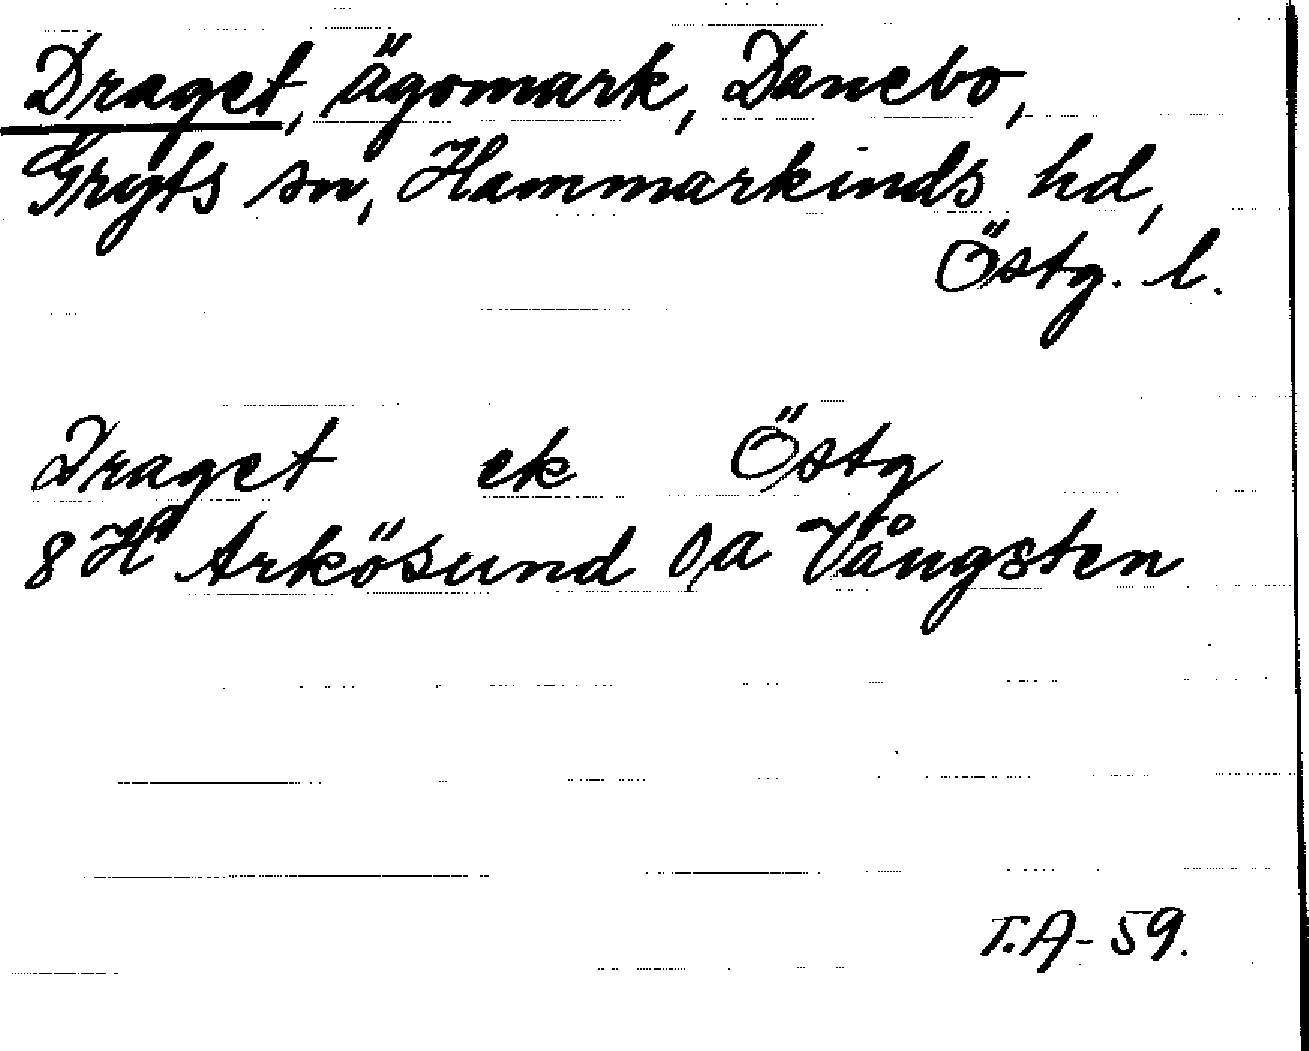 Draget, ägomark, Danebo,
Gryts sn, Hammarkinds hd,
Östg. l.
Draget ek Östg
8H Arkösund SA Vångsten
T.A-59.